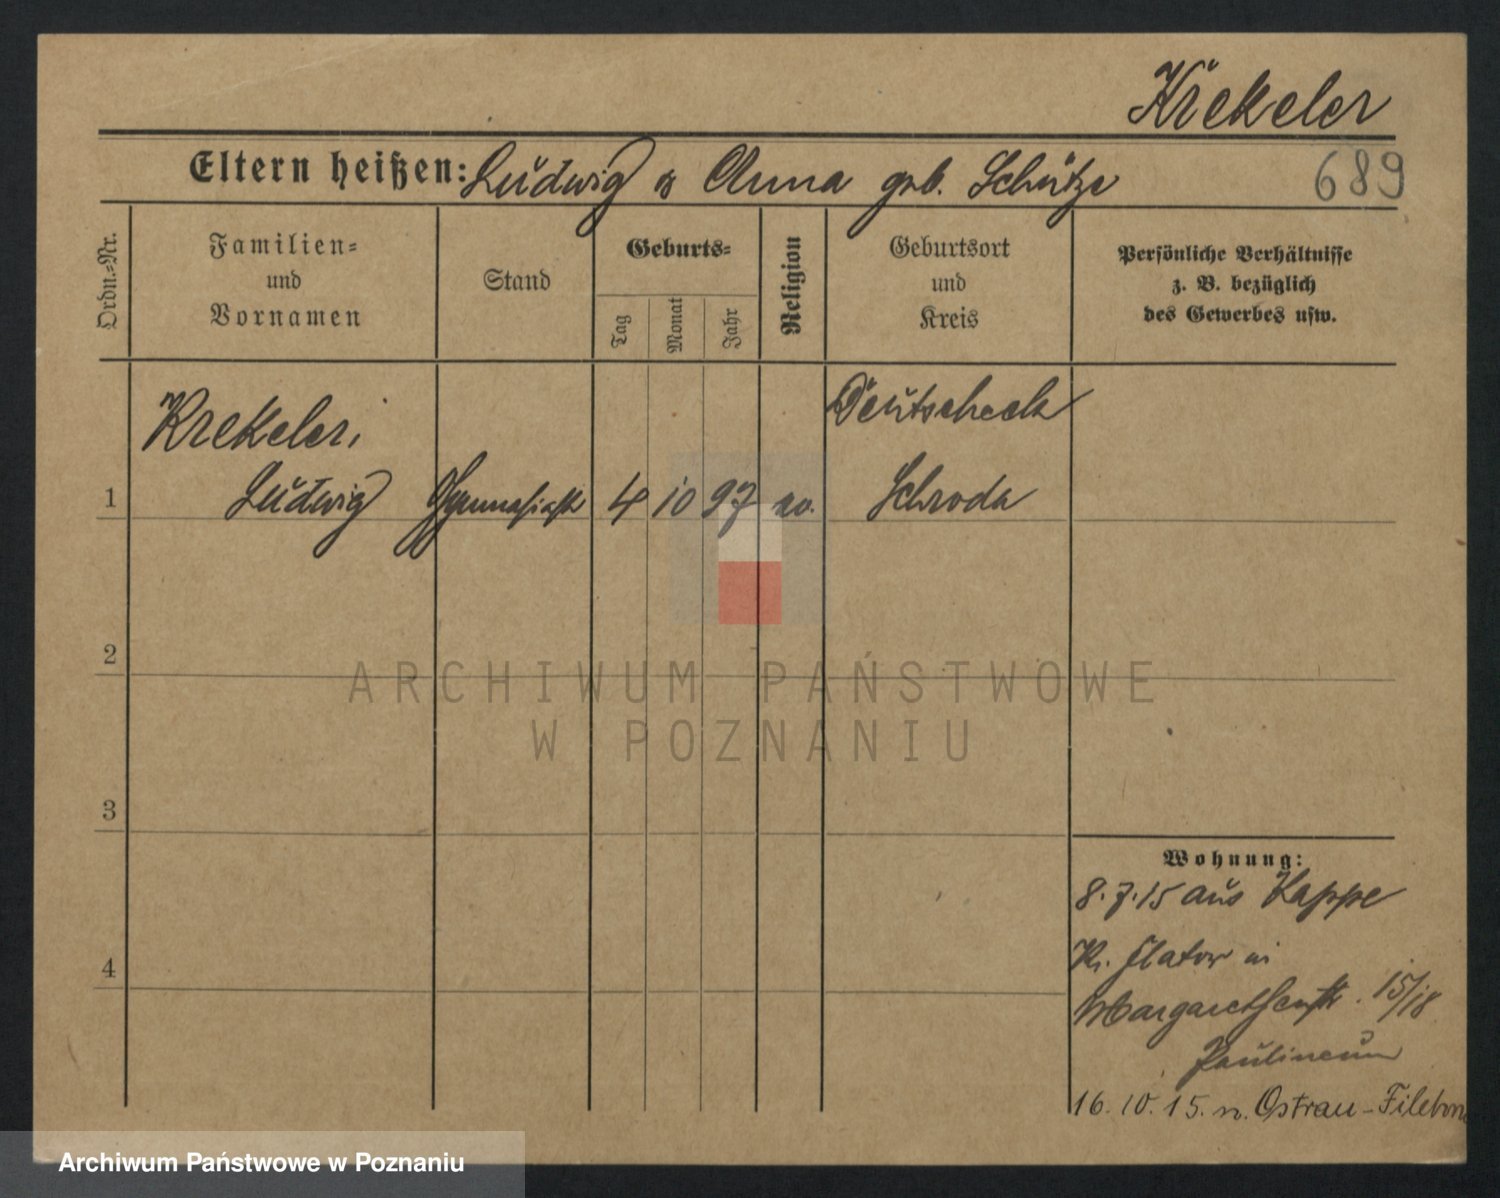 Krekeler
Eltern heißen: Ludwig & Anna geb. Schütze
689
Ordn.-Nr.
Familien-
und
Vornamen
Stand
Geburts-
Tag
Monat
Jahr
Religion
Geburtsort
und
Kreis
Persönliche Verhältnisse
z. B. bezüglich
des Gewerbes usw.
Krekeler,
Deutscheck
1 Ludwig Gymnasiast 4 10 97 ev. Schroda
2
3
4
ARCHIWUM PAŃSTWOWE
W POZNANIU
Wohnung:
8.7.15 aus Kappe
Kr. Flatow in
Margarethenstr. 15/18
Paulineum
16.10.15. n. Ostrau-Filehne
Archiwum Państwowe w Poznaniu